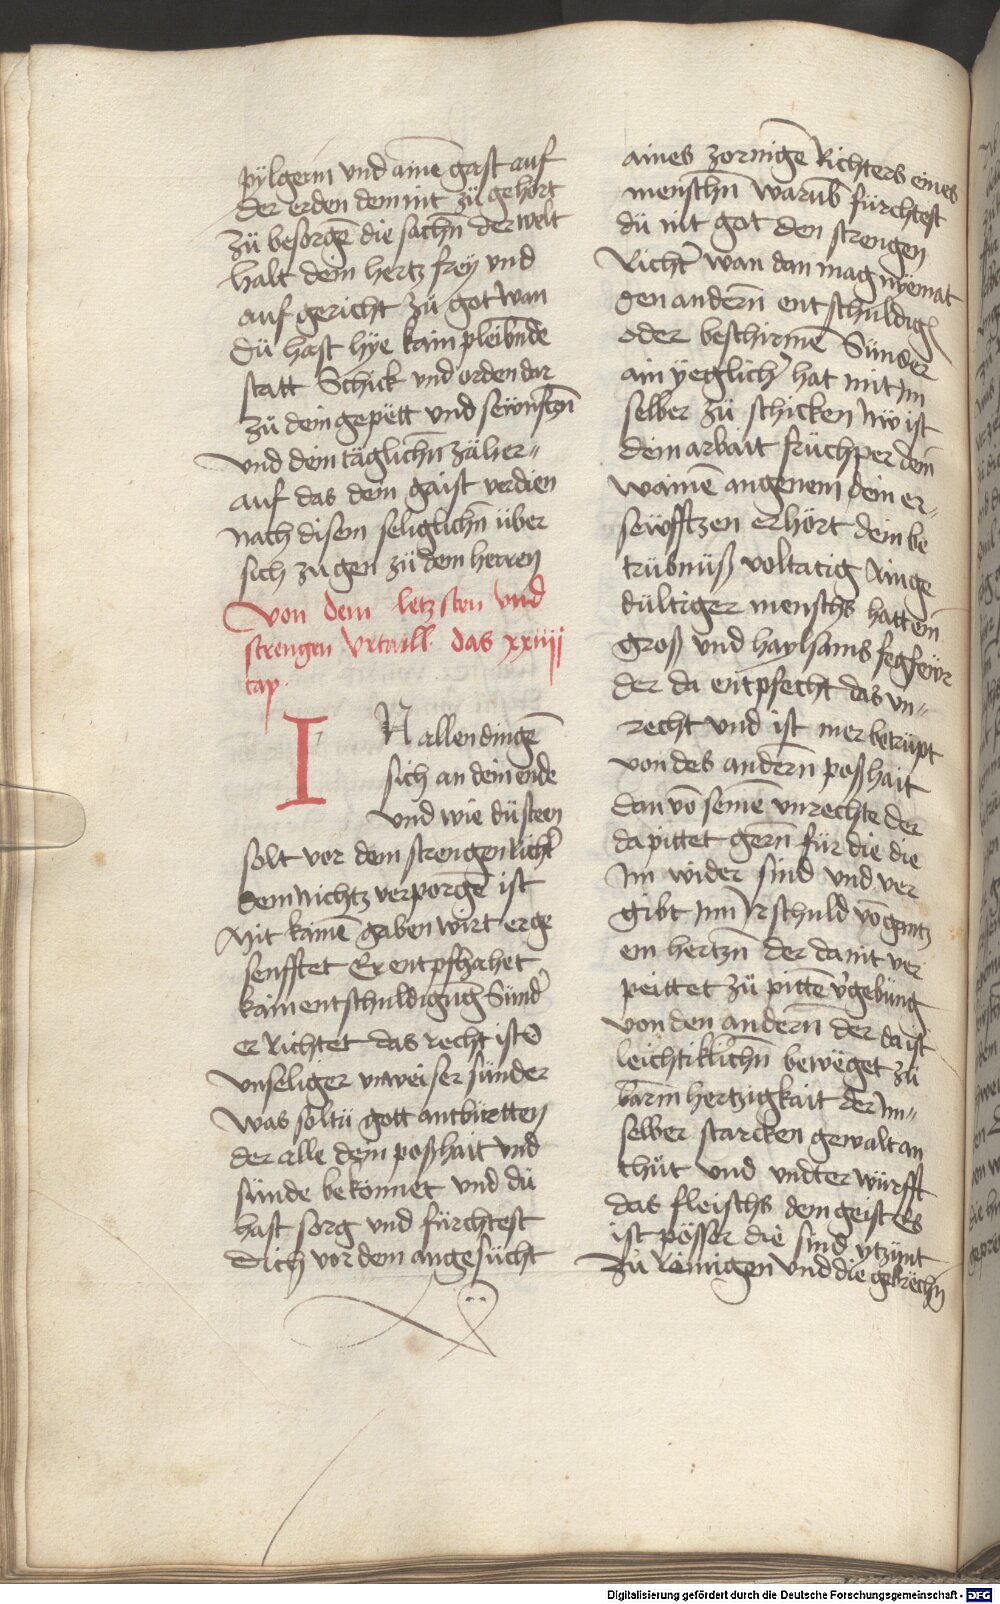 pÿlgerin und ainē gast auf
der erden dem nit zü gehört
zü besorgē die sachñ der welt
halt dein hertz freÿ und
auf gericht zü got wan
dü hast hÿe kain pleibñde
statt Schick und orden dar
zü dein gepëtt und sewnftzñ
und dein täglichñ zäher=
auf das dein gaist verdien
nach disem seliglichñ über
sich zu gen zü dem herren
Von dem letzsten und
strengen Urtaill das xxiiij
cap
IN allen dingē
sich an dein ende
und wie dü steen
solt vor dem strengen richt̉
dem nichtz verporgē ist
Mit kainē gaben wirt erge
senfftet Er entpfahet
kain entschuldigūg Sünd̉
er Richtet das recht ist O
unseliger unweiser sünder
was soltü gott antbürtten
der alle dein poßhait und
sünde bekennet und dü
hast sorg und fürchtest
dich vor dem angesücht
aines zornigē Richters eines
menschñ warūb fürchtest
dü nit got den strengen
Richt̉ wan dan mag nÿemāt
den andern̄ entschuldigē
oder beschirmē Sünder
ain ÿeglich̉ hat mit im
selber zü schicken Nw ist
dein arbait früchper dein
wainē angenem dein er=
sewfftzen erhört dein be
trübnüß voltatig Ain ge
dültiger menschs hatt ein
groß und haylsams fegfewr
der da entpfecht das un=
recht und ist mer betrüpt
von des andern̄ poßhait
dan vō seinē unrechte der
da pittet gern̄ für die die
Im wider sind und ver
gibt im Ir schuld vō gantz
em hertzñ der da nit ver
peittet zü pittē v̉gebüng
von den andern̄ der da ist
leichtiklichñ bewëget zü
barmhertzigkait der im=
selber starcken gewalt an
thüt und undter würfft
das fleischs dem geist Es
ist pösser die sind ytzünt
zü rainigen und die gebrechñ
Digitalisierung gefördert durch die Deutsche Forschungsgemeinschaft - DFG